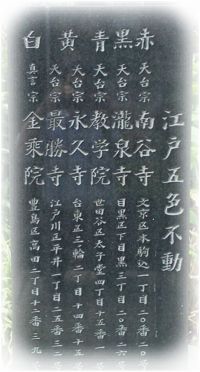 江戸五色不動
赤 天台宗 南谷寺 文京区本駒込一丁目二〇番二〇
黒 天台宗 瀧泉寺 目黒区下目黒三丁目二〇番二六
青 天台宗 教学院 世田谷区太子堂四丁目十五番一
黄 天台宗 永久寺 台東区三ノ輪二丁目十四番十五
天台宗 最勝寺 江戸川区平井一丁目二五番三二
白 真言宗 金乗院 豊島区高田二丁目十二番三九